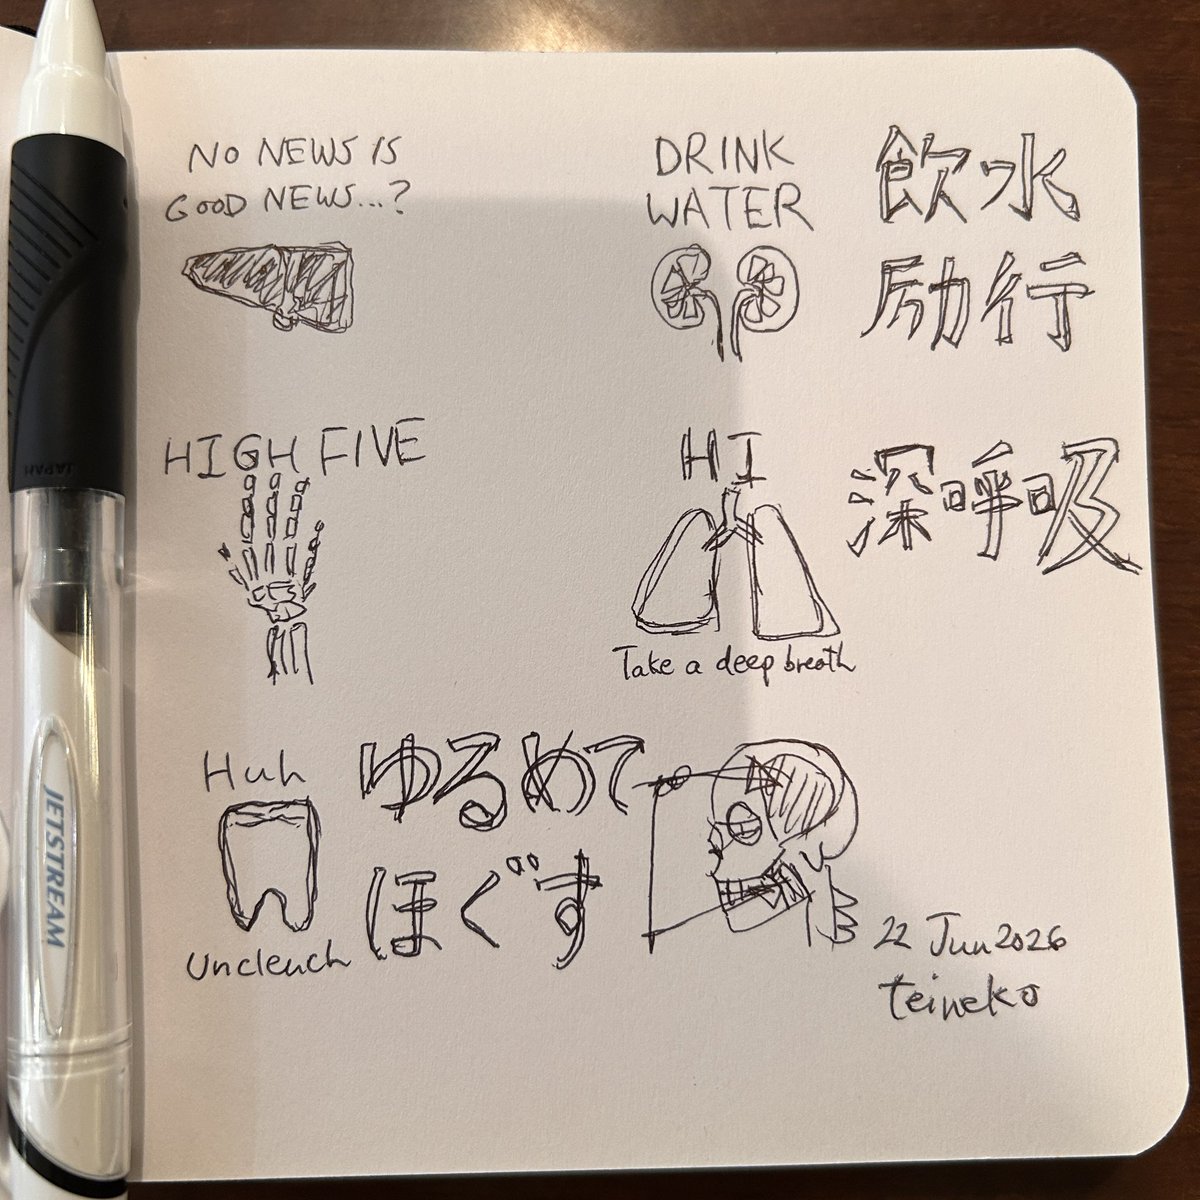 NO NEWS IS
GOOD NEWS...?
DRINK
WATER
飲水
励行
HIGH FIVE
HI
深呼吸
Take a deep breath
Huh
Unclench
ゆるめて
ほぐす
22 Jun 2026
teineko
JAPAN
JETSTREAM